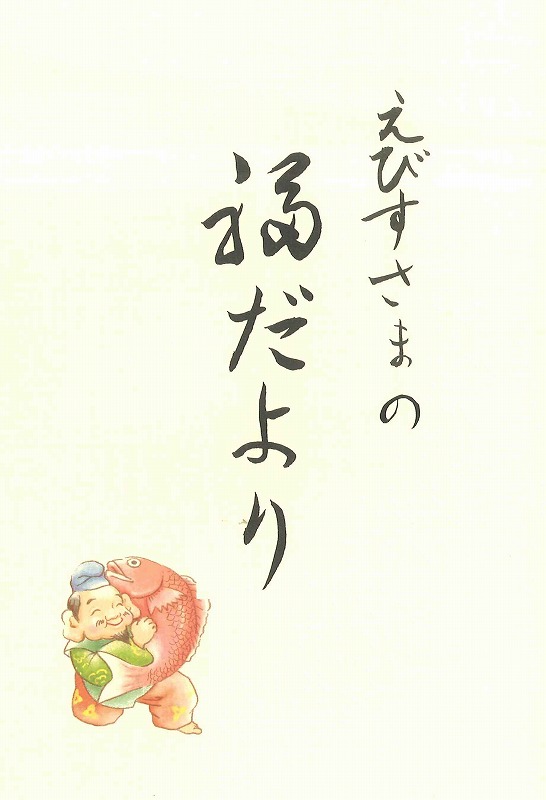 えびすさまの
福だより